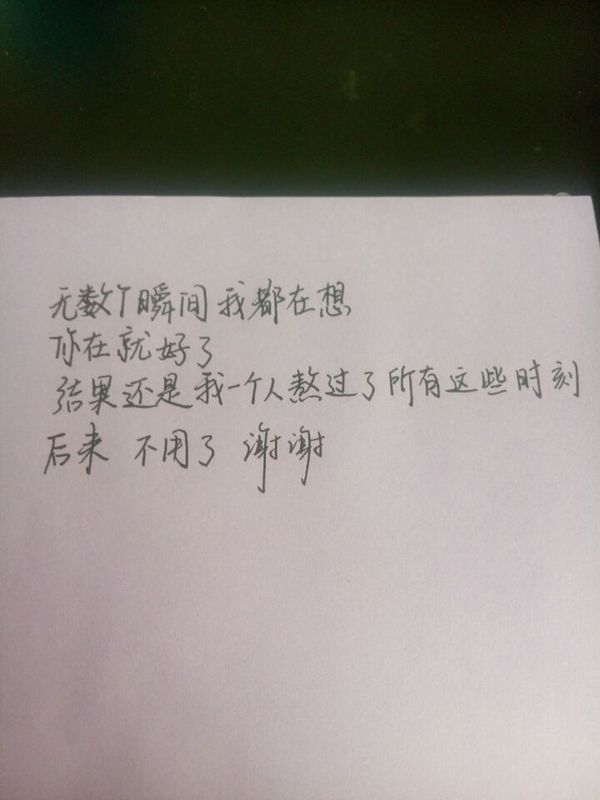 无数个瞬间 我都在想
你在就好了
结果还是我一个人熬过了所有这些时刻
后来 不用了 谢谢